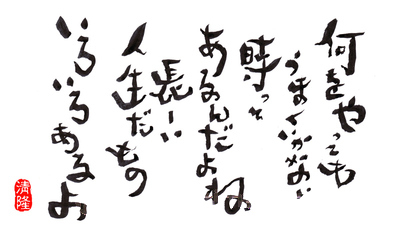 何をやっても
うまくいかない
時って
あるんだよね
長ーい
人生だもの
いろいろあるよ
清隆